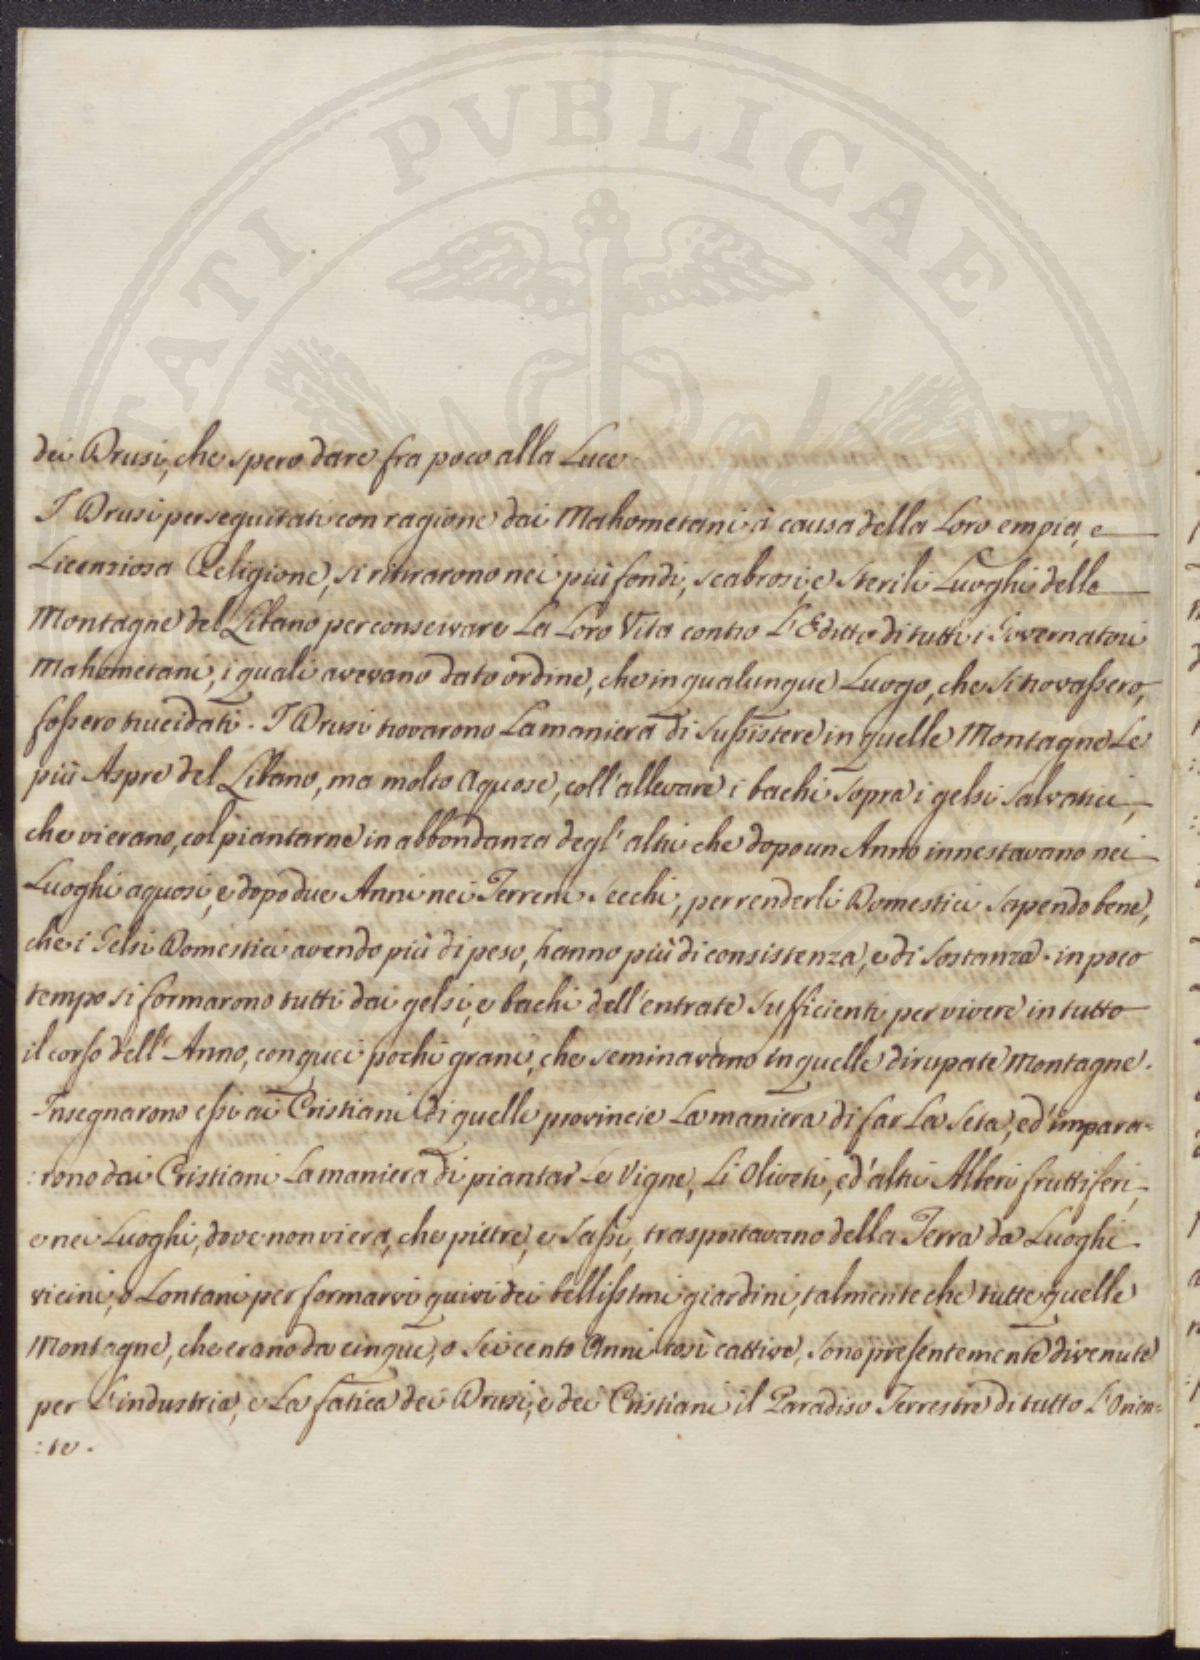 PUBLICAE
dei Drusi, che spero dare fra poco alla Luce.
I Drusi perseguitati con ragione dai Mahometani à causa della Loro empia, e
Licenziosa Religione, si ritirarono nei più fondi, scabrosi, e Sterili Luoghi delle
Montagne del Libano per conservare La Loro Vita contro L'Editto di tutti i Governatori
Mahometani, i quali avevano dato ordine, che in qualunque Luogo, che Si trovassero,
fossero trucidati. I Drusi trovarono La maniera di Sussistere in quelle Montagne Le
più Aspre del Libano, ma molto Aquose, coll'allevare i bachi Sopra i gelsi Salvatici,
che vi erano, col piantarne in abbondanza degl'altri che dopo un Anno innestavano nei
Luoghi aquosi, e dopo due Anni nei Terreni Secchi, per renderli Domestici Sapendo bene,
che i Gelsi Domestici avendo più di peso, hanno più di consistenza, e di Sostanza. in poco
tempo si formarono tutti dai gelsi, e bachi dell'entrate Sufficienti per vivere in tutto
il corso dell'Anno, con quei pochi grani, che seminavano in quelle dirupate Montagne.
Insegnarono essi ai Cristiani di quelle provincie La maniera di far La Seta, ed'impara=
:rono dai Cristiani La maniera di piantar Le Vigne, Li Oliveti, ed'altri Alberi fruttiferi,
e nei Luoghi, dove non viera, che pietre, e Sassi, trasportavano della Terra da Luoghi
vicini, o Lontani per formarvi quivi dei bellissimi giardini, talmente che tutte quelle
Montagne, che erano da cinque, o Seicento Anni così cattive, Sono presentemente divenute
per L'industria, e La fatica dei Drusi, e dei Cristiani il Paradiso Terrestre di tutto L'Orien=
:te.